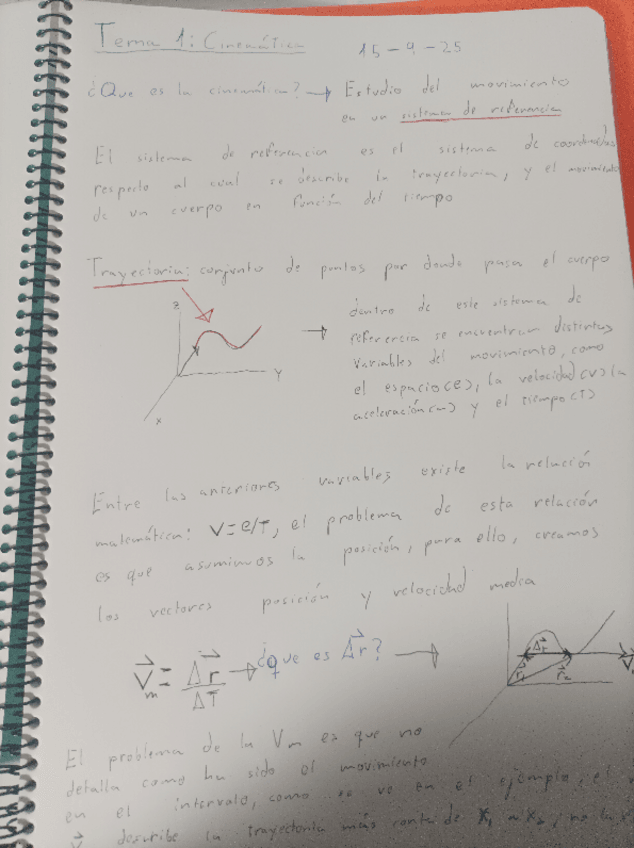 Tema 1: Cinemática 15-9-25
¿Que es la cinemática? → Estudio del movimiento
en un sistema de referencia
El sistema de referencia es el sistema de coordenadas
respecto al cual se describe la trayectoria, y el movimiento
de un cuerpo en función del tiempo
Trayectoria: conjunto de puntos por donde pasa el cuerpo
z
y
x
→ dentro de este sistema de
referencia se encuentran distintas
variables del movimiento, como
el espacio(e), la velocidad(v) la
aceleración(a) y el tiempo(T)
Entre las anteriores variables existe la relación
matemática: V=e/T, el problema de esta relación
es que asumimos la posición, para ello, creamos
los vectores posición y velocidad media
V⃗m = Δr⃗/ΔT → ¿que es Δr⃗? →
Δr⃗
r⃗₁ r⃗₂
El problema de la Vm es que no
detalla como ha sido el movimiento
en el intervalo, como se ve en el ejemplo, el
describe la trayectoria más corta de X₁ a X₂, no la